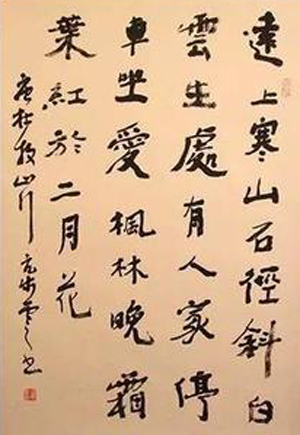 遠上寒山石徑斜白
雲生處有人家停
車坐愛楓林晚霜
葉紅於二月花
唐杜牧山行